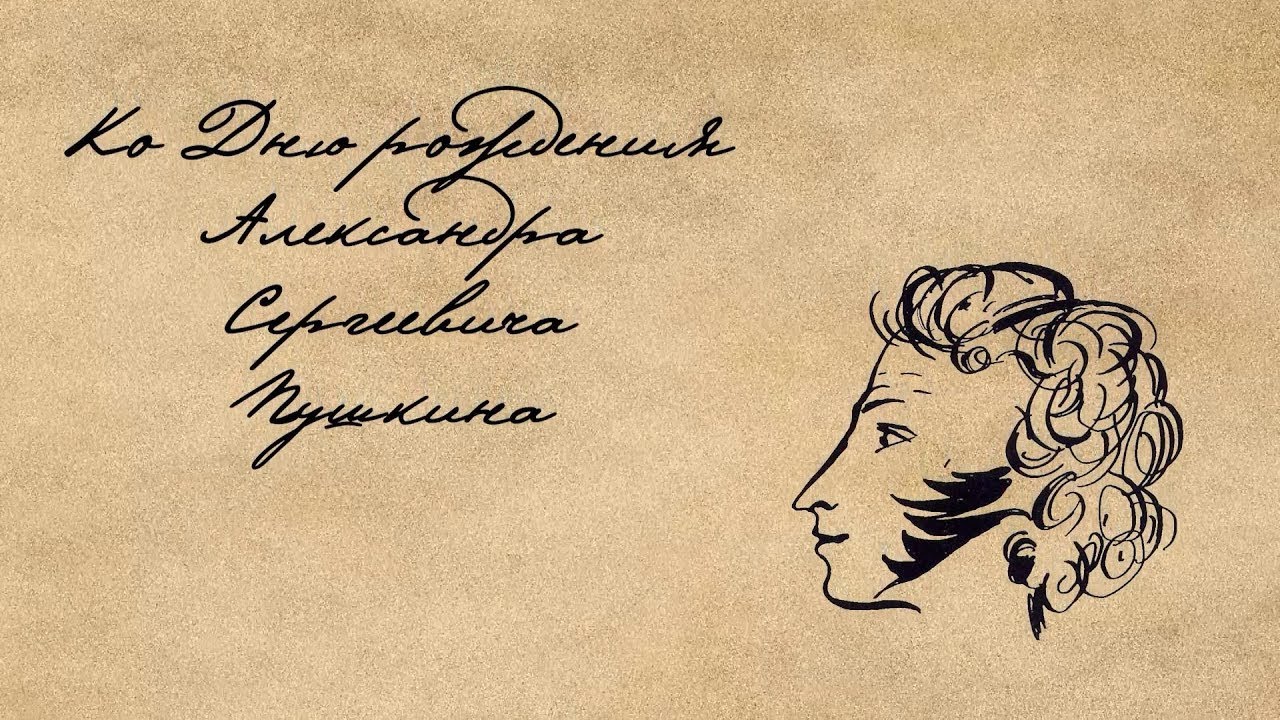 Ко Дню рождения
Александра
Сергеевича
Пушкина